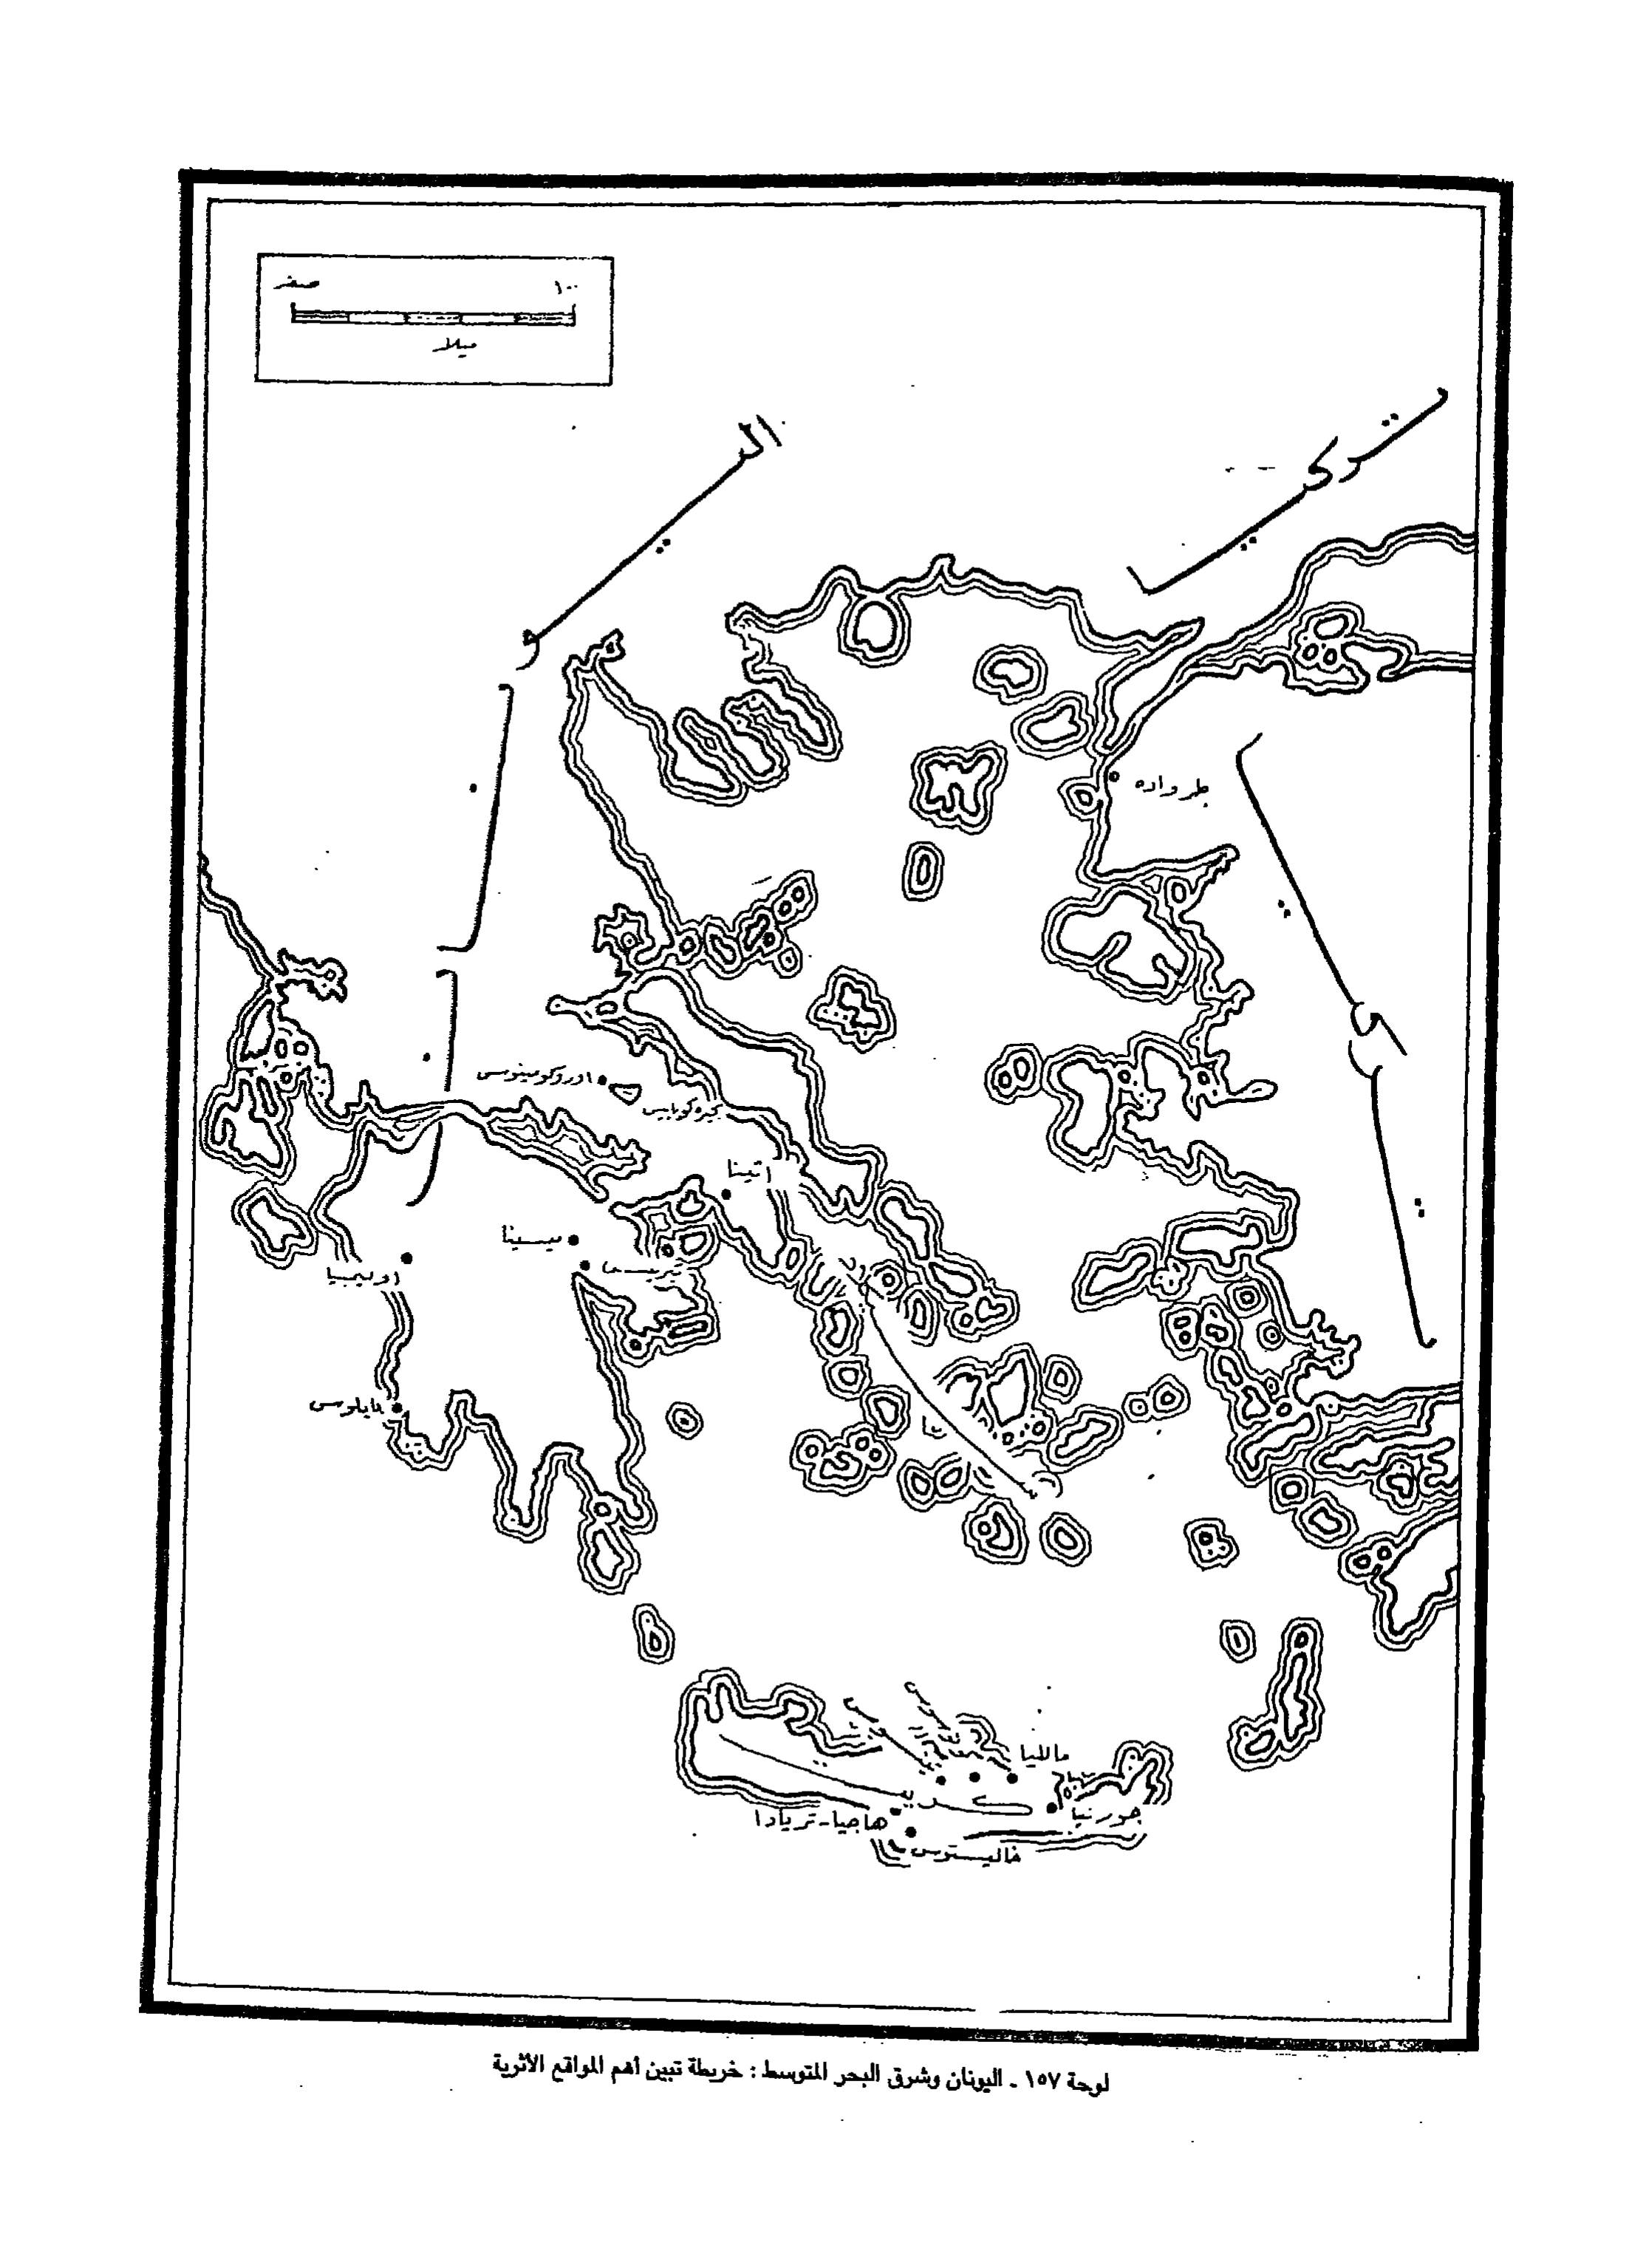 صفر ١٠٠
ميلا
اليونان
تركيا
تركيا
طرواده
اوروكومينوس
اثينا
ميسينا
اوليمبيا
بايلوس
ماليا
كريت
جورنيا
هاجيا-تريادا
فاليستوس
لوحة ١٥٧ - اليونان وشرق البحر المتوسط : خريطة تبين أهم المواقع الأثرية